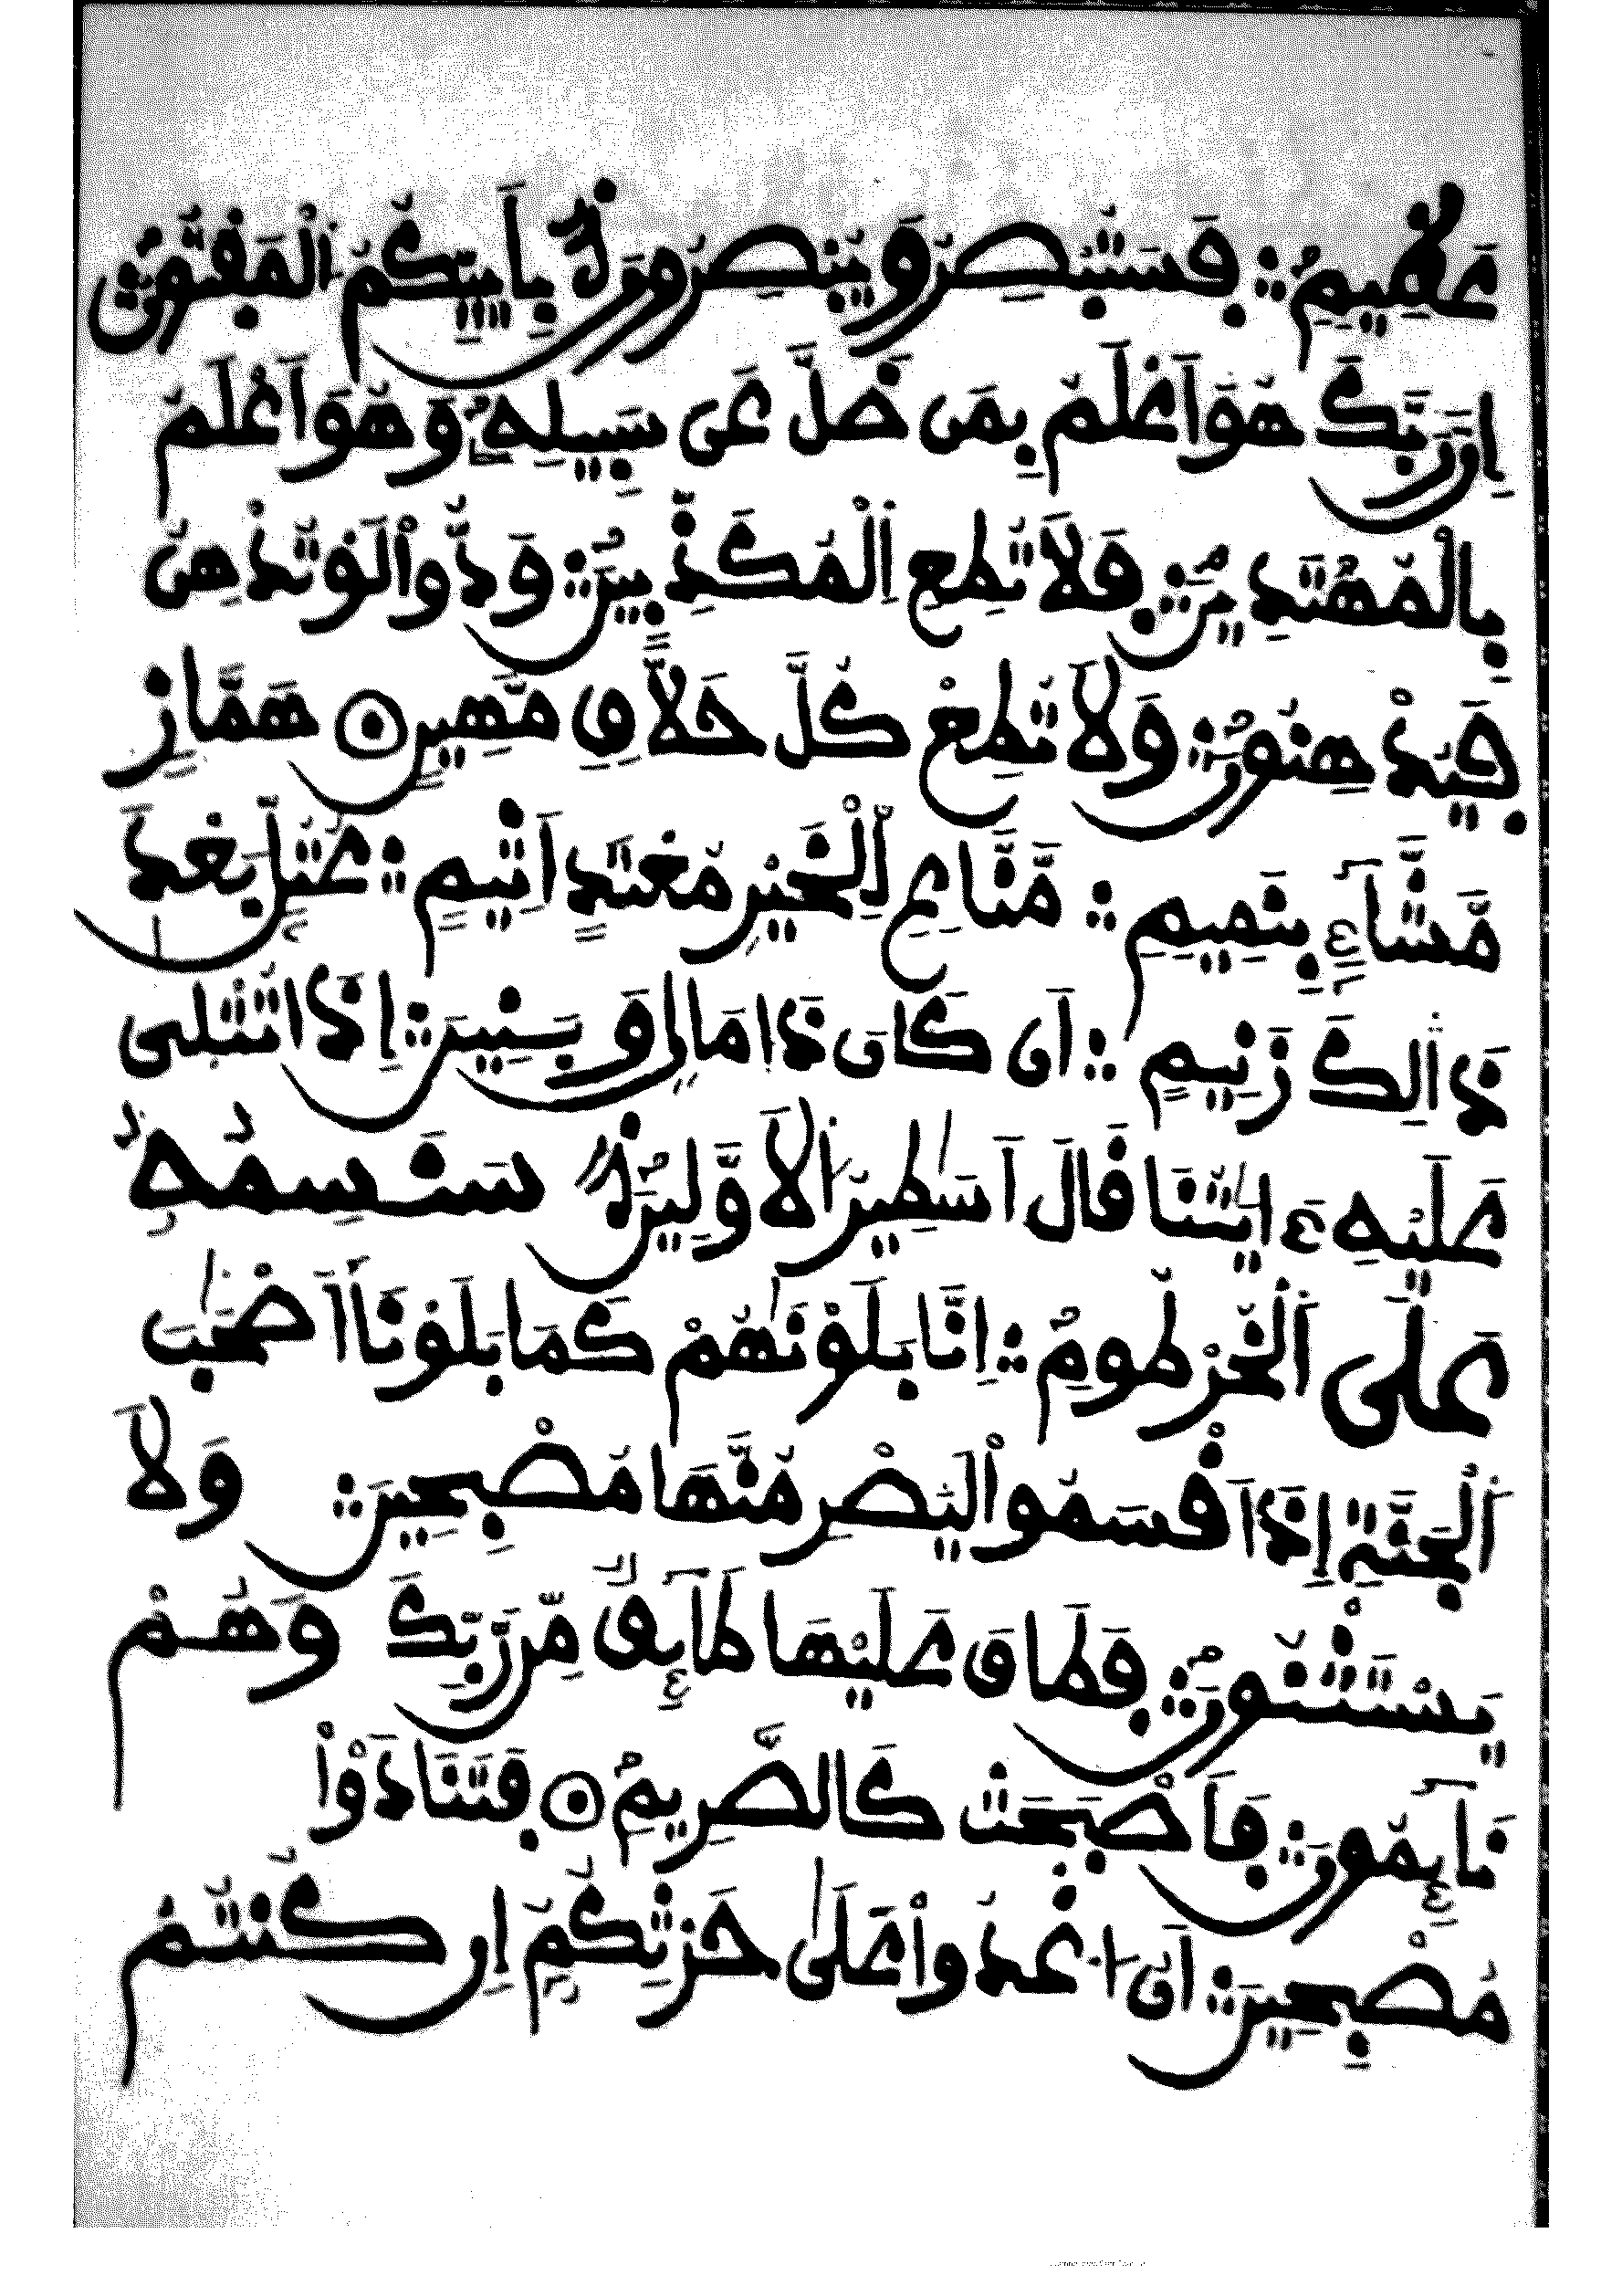 عَظِيمٍ فَسَتُبْصِرُ وَيُبْصِرُونَ بِأَييِّكُمُ الْمَفْتُونُ
إِنَّ رَبَّكَ هُوَ أَعْلَمُ بِمَن ضَلَّ عَن سَبِيلِهِ وَهُوَ أَعْلَمُ
بِالْمُهْتَدِينَ فَلَا تُطِعِ الْمُكَذِّبِينَ وَدُّواْ لَوْ تُدْهِنُ
فَيُدْهِنُونَ وَلَا تُطِعْ كُلَّ حَلَّافٍ مَّهِينٍ هَمَّازٍ
مَّشَّآءٍ بِنَمِيمٍ مَّنَّاعٍ لِّلْخَيْرِ مُعْتَدٍ أَثِيمٍ عُتُلٍّ بَعْدَ
ذَالِكَ زَنِيمٍ أَن كَانَ ذَا مَالٍ وَبَنِينَ إِذَا تُتْلَى
عَلَيْهِ ءَايَٰتُنَا قَالَ أَسَٰطِيرُ الْأَوَّلِينَ سَنَسِمُهُ
عَلَى الْخُرْطُومِ إِنَّا بَلَوْنَٰهُمْ كَمَا بَلَوْنَا أَصْحَٰبَ
الْجَنَّةِ إِذْ أَقْسَمُواْ لَيَصْرِمُنَّهَا مُصْبِحِينَ وَلَا
يَسْتَثْنُونَ فَطَافَ عَلَيْهَا طَآئِفٌ مِّن رَّبِّكَ وَهُمْ
نَآئِمُونَ فَأَصْبَحَتْ كَالصَّرِيمِ فَتَنَادَوْاْ
مُصْبِحِينَ أَنُ اغْدُواْ عَلَىٰ حَرْثِكُمُ إِن كُنتُمْ